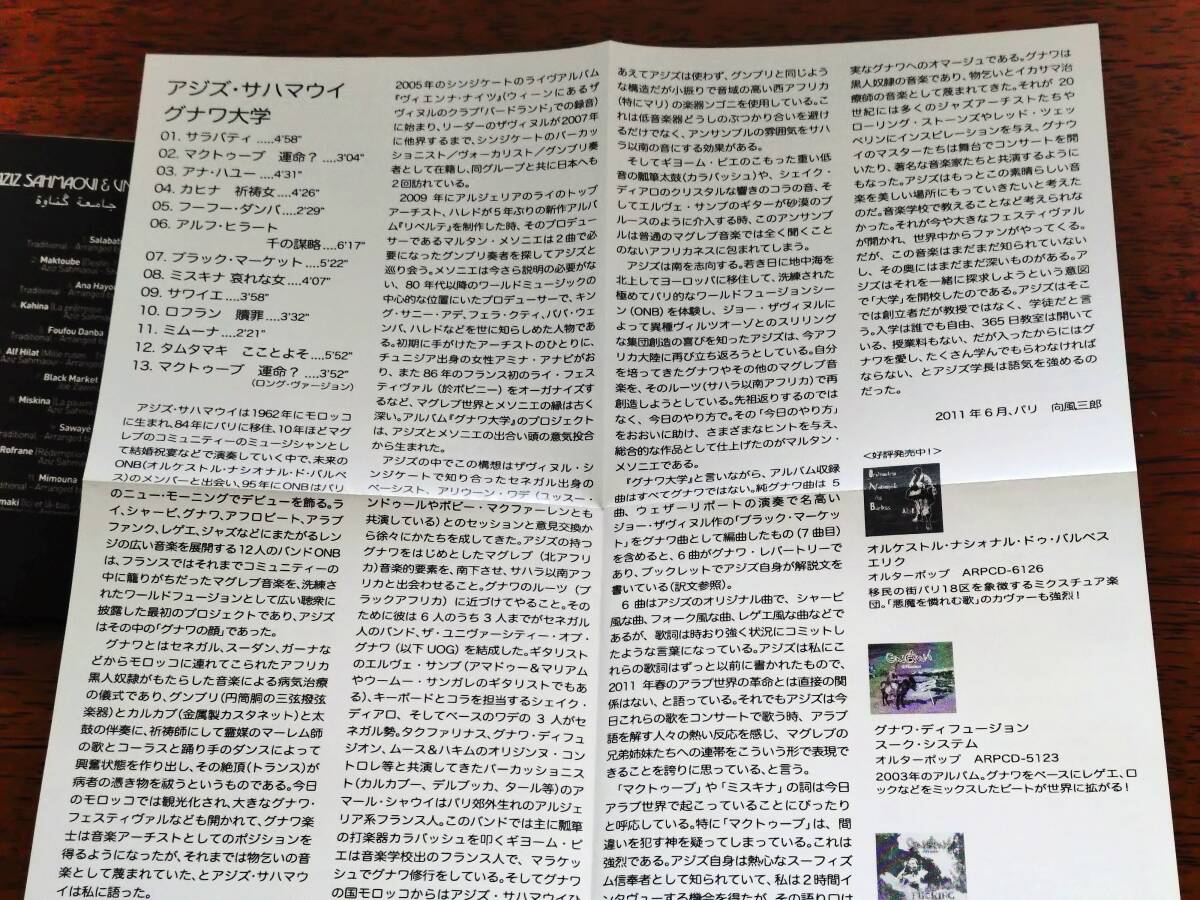 アジズ・サハマウイ
グナワ大学
01. サラバティ .....4'58"
02. マクトゥーブ 運命？ ....3'04"
03. アナ・ハユー ....4'31"
04. カヒナ 祈祷女 ....4'26"
05. フーフー・ダンバ ....2'29"
06. アルフ・ヒラート
千の謀略 ....6'17"
07. ブラック・マーケット ....5'22"
08. ミスキナ 哀れな女 ....4'07"
09. サワイエ ....3'58"
10. ロフラン 贖罪 ....3'32"
11. ミムーナ ....2'21"
12. タムタマキ こことよそ ....5'52"
13. マクトゥーブ 運命？ ....3'52"
(ロング・ヴァージョン)
アジズ・サハマウイは1962年にモロッコ
に生まれ、84年にパリに移住、10年ほどマグ
レブのコミュニティーのミュージシャンとし
て結婚祝宴などで演奏していく中で、未来の
ONB(オルケストル・ナショナル・ド・バルベ
ス)のメンバーと出会い、95年にONBはパリ
のニュー・モーニングでデビューを飾る。ラ
イ、シャービ、グナワ、アフロビート、アラブ
ファンク、レゲエ、ジャズなどにまたがるレン
ジの広い音楽を展開する12人のバンドONB
は、フランスではそれまでコミュニティーの
中に籠りがちだったマグレブ音楽を、洗練さ
れたワールドフュージョンとして広い聴衆に
披露した最初のプロジェクトであり、アジズ
はその中の「グナワの顔」であった。
グナワとはセネガル、スーダン、ガーナな
どからモロッコに連れてこられたアフリカ
黒人奴隷がもたらした音楽による病気治療
の儀式であり、グンブリ(円筒胴の三弦撥弦
楽器)とカルカブ(金属製カスタネット)と太
鼓の伴奏に、祈祷師にして霊媒のマーレム師
の歌とコーラスと踊り手のダンスによって
興奮状態を作り出し、その絶頂(トランス)が
病者の憑き物を祓うというものである。今日
のモロッコでは観光化され、大きなグナワ・
フェスティヴァルなども開かれて、グナワ楽
士は音楽アーチストとしてのポジションを
得るようになったが、それまでは物乞いの音
楽として蔑まれていた、とアジズ・サハマウ
イは私に語った。
2005年のシンジケートのライヴアルバム
『ヴィエンナ・ナイツ』(ウィーンにあるザ
ヴィヌルのクラブ「バードランド」での録音)
に始まり、リーダーのザヴィヌルが2007年
に他界するまで、シンジケートのパーカッ
ショニスト／ヴォーカリスト／グンブリ奏
者として在籍し、同グループと共に日本へも
2回訪れている。
2009 年にアルジェリアのライのトップ
アーチスト、ハレドが5年ぶりの新作アルバ
ム『リベルテ』を制作した時、そのプロデュー
サーであるマルタン・メソニエは2曲で必
要になったグンブリ奏者を探してアジズと
巡り会う。メソニエは今さら説明の必要がな
い、80 年代以降のワールドミュージックの
中心的な位置にいたプロデューサーで、キン
グ・サニー・アデ、フェラ・クティ、パパ・ウェ
ンバ、ハレドなどを世に知らしめた人物であ
る。初期に手がけたアーチストのひとりに、
チュニジア出身の女性アミナ・アナビがお
り、また 86 年のフランス初のライ・フェス
ティヴァル (於ボビニー) をオーガナイズす
るなど、マグレブ世界とメソニエの縁は古く
深い。アルバム『グナワ大学』のプロジェクト
は、アジズとメソニエの出合い頭の意気投合
から生まれた。
アジズの中でこの構想はザヴィヌル・シ
ンジケートで知り合ったセネガル出身の
ベーシスト、アリウーン・ワデ (ユッスー・
ンドゥールやボビー・マクファーレンとも
共演している)とのセッションと意見交換か
ら徐々にかたちを成してきた。アジズの持つ
グナワをはじめとしたマグレブ (北アフリ
カ)音楽的要素を、南下させ、サハラ以南アフ
リカと出会わせること。グナワのルーツ (ブ
ラックアフリカ) に近づけてやること。その
ために彼は 6 人のうち 3 人までがセネガル
人のバンド、ザ・ユニヴァーシティー・オブ・
グナワ (以下 UOG) を結成した。ギタリスト
のエルヴェ・サンブ (アマドゥー＆マリアム
やウームー・サンガレのギタリストでもあ
る)、キーボードとコラを担当するシェイク・
ディアロ、そしてベースのワデの 3 人がセ
ネガル勢。タクファリナス、グナワ・ディフュ
ジオン、ムース＆ハキムのオリジンヌ・コン
トロレ等と共演してきたパーカッショニス
ト(カルカブー、デルブッカ、タール等)のア
マール・シャウイはパリ郊外生れのアルジェ
リア系フランス人。このバンドでは主に瓢箪
の打楽器カラバッシュを叩くギヨーム・ピ
エは音楽学校出のフランス人で、マラケッ
シュでグナワ修行をしている。そしてグナワ
の国モロッコからはアジズ・サハマウイひ
あえてアジズは使わず、グンブリと同じよう
な構造だが小振りで音域の高い西アフリカ
(特にマリ) の楽器ンゴニを使用している。こ
れは低音楽器どうしのぶつかり合いを避け
るだけでなく、アンサンブルの雰囲気をサハ
ラ以南の音にする効果がある。
そしてギヨーム・ピエのこもった重い低
音の瓢箪太鼓(カラバッシュ)や、シェイク・
ディアロのクリスタルな響きのコラの音、そ
してエルヴェ・サンブのギターが砂漠のブ
ルースのように介入する時、このアンサンブ
ルは普通のマグレブ音楽では全く聞くこと
のないアフリカネスに包まれてしまう。
アジズは南を志向する。若き日に地中海を
北上してヨーロッパに移住して、洗練された
極めてパリ的なワールドフュージョンシー
ン (ONB) を体験し、ジョー・ザヴィヌルに
よって異種ヴィルツオーゾとのスリリング
な集団創造の喜びを知ったアジズは、今アフ
リカ大陸に再び立ち返ろうとしている。自分
を培ってきたグナワやその他のマグレブ音
楽を、そのルーツ(サハラ以南アフリカ)で再
創造しようとしている。先祖返りするのでは
なく、今日のやり方で。その「今日のやり方」
をおおいに助け、さまざまなヒントを与え、
総合的な作品として仕上げたのがマルタン・
メソニエである。
『グナワ大学』と言いながら、アルバム収録
曲はすべてグナワではない。純グナワ曲は 5
曲、ウェザーリポートの演奏で名高い
ジョー・ザヴィヌル作の「ブラック・マーケッ
ト」をグナワ曲として編曲したもの (7 曲目)
を含めると、6 曲がグナワ・レパートリーで
あり、ブックレットでアジズ自身が解説文を
書いている (訳文参照)。
6 曲はアジズのオリジナル曲で、シャービ
風な曲、フォーク風な曲、レゲエ風な曲などで
あるが、歌詞は時おり強く状況にコミットし
たような言葉になっている。アジズは私にこ
れらの歌詞はずっと以前に書かれたもので、
2011 年春のアラブ世界の革命とは直接の関
係はない、と語っている。それでもアジズは今
日これらの歌をコンサートで歌う時、アラブ
語を解す人々の熱い反応を感じ、マグレブの
兄弟姉妹たちへの連帯をこういう形で表現で
きることを誇りに思っている、と言う。
「マクトゥーブ」や「ミスキナ」の詞は今日
アラブ世界で起こっていることにぴったり
と呼応している。特に「マクトゥーブ」は、間
違いを犯す神を疑ってしまっている。これは
強烈である。アジズ自身は熱心なスーフィズ
ム信奉者として知られていて、私は 2 時間イ
ンタヴューする機会を得たが、その語り口は
実なグナワへのオマージュである。グナワは
黒人奴隷の音楽であり、物乞いとイカサマ治
療師の音楽として蔑まれてきた。それが 20
世紀には多くのジャズアーチストたちや
ローリング・ストーンズやレッド・ツェッ
ペリンにインスピレーションを与え、グナウ
イのマスターたちは舞台でコンサートを開
いたり、著名な音楽家たちと共演するように
もなった。アジズはもっとこの素晴らしい音
楽を美しい場所にもっていきたいと考えた
のだ。音楽学校で教えることなど考えられな
かった。それが今や大きなフェスティヴァル
が開かれ、世界中からファンがやってくる。
だが、この音楽はまだまだ知られていない
し、その奥にはまだまだ深いものがある。ア
ジズはそれを一緒に探求しようという意図
で「大学」を開校したのである。アジズはそこ
では創立者だが教授ではなく、学徒だと言
う。入学は誰でも自由、365日教室は開いて
いる、授業料もない、だが入ったからにはグ
ナワを愛し、たくさん学んでもらわなければ
ならない、とアジズ学長は語気を強めるの
だった。
2011 年 6 月、パリ 向風三郎
<好評発売中！>
オルケストル・ナショナル・ドゥ・バルベス
エリク
オルターポップ ARPCD-6126
移民の街パリ18区を象徴するミクスチュア楽
団。「悪魔を憐れむ歌」のカヴァーも強烈！
グナワ・ディフュージョン
スーク・システム
オルターポップ ARPCD-5123
2003年のアルバム。グナワをベースにレゲエ、ロ
ックなどをミックスしたビートが世界に拡がる！
AZIZ SAHMAOUI & UN
جامعة كناوة
Salabat
Traditional - Arranged b
Maktoube
Aziz Sahmaoui
Ana Hayo
Kahina
Foufou Danba
Alf Hilat
Black Market
Miskina
Sawayé
Traditional - Arranged
Rofrane
Mimouna